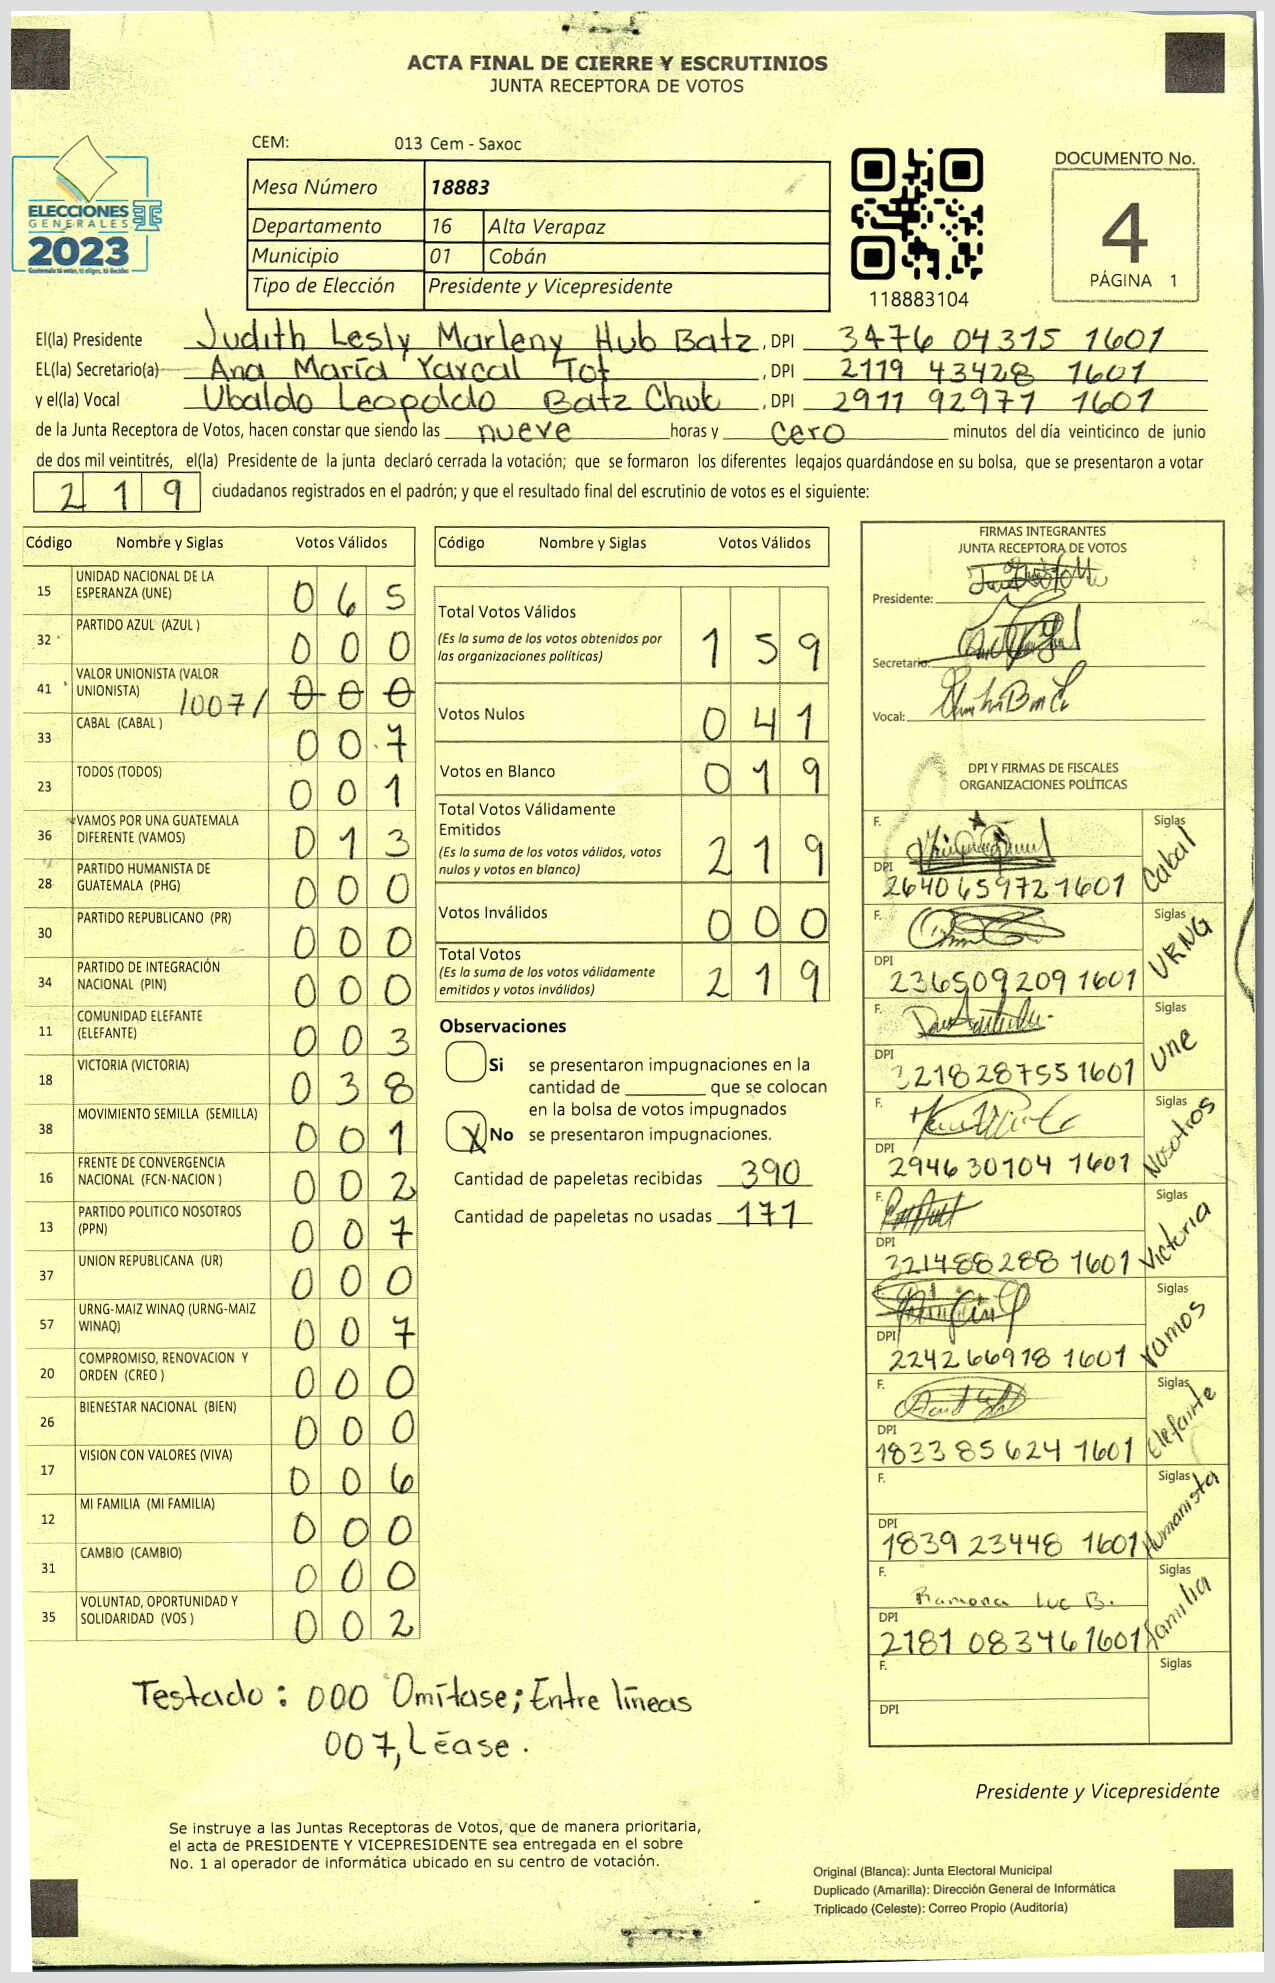 ACTA FINAL DE CIERRE Y ESCRUTINIOS
JUNTA RECEPTORA DE VOTOS
ELECCIONES
GENERALES
2023
Guatemala tú votas, tú eliges, tú decides
CEM: 013 Cem - Saxoc
Mesa Número 18883
Departamento 16 Alta Verapaz
Municipio 01 Cobán
Tipo de Elección Presidente y Vicepresidente
118883104
DOCUMENTO No.
4
PÁGINA 1
El(la) Presidente Judith Lesly Marleny Hub Batz, DPI 3476 04315 1601
EL(la) Secretario(a) Ana María Yaxcal Tot, DPI 2119 43428 1601
y el(la) Vocal Ubaldo Leopoldo Batz Chub, DPI 2911 92971 1601
de la Junta Receptora de Votos, hacen constar que siendo las nueve horas y cero minutos del día veinticinco de junio
de dos mil veintitrés, el(la) Presidente de la junta declaró cerrada la votación; que se formaron los diferentes legajos guardándose en su bolsa, que se presentaron a votar
219 ciudadanos registrados en el padrón; y que el resultado final del escrutinio de votos es el siguiente:
Código Nombre y Siglas Votos Válidos
15 UNIDAD NACIONAL DE LA ESPERANZA (UNE) 065
32 PARTIDO AZUL (AZUL ) 000
41 VALOR UNIONISTA (VALOR UNIONISTA) /007/ 000
33 CABAL (CABAL ) 007
23 TODOS (TODOS) 001
36 VAMOS POR UNA GUATEMALA DIFERENTE (VAMOS) 013
28 PARTIDO HUMANISTA DE GUATEMALA (PHG) 000
30 PARTIDO REPUBLICANO (PR) 000
34 PARTIDO DE INTEGRACIÓN NACIONAL (PIN) 000
11 COMUNIDAD ELEFANTE (ELEFANTE) 003
18 VICTORIA (VICTORIA) 038
38 MOVIMIENTO SEMILLA (SEMILLA) 001
16 FRENTE DE CONVERGENCIA NACIONAL (FCN-NACION ) 002
13 PARTIDO POLITICO NOSOTROS (PPN) 007
37 UNION REPUBLICANA (UR) 000
57 URNG-MAIZ WINAQ (URNG-MAIZ WINAQ) 007
20 COMPROMISO, RENOVACION Y ORDEN (CREO ) 000
26 BIENESTAR NACIONAL (BIEN) 000
17 VISION CON VALORES (VIVA) 006
12 MI FAMILIA (MI FAMILIA) 000
31 CAMBIO (CAMBIO) 000
35 VOLUNTAD, OPORTUNIDAD Y SOLIDARIDAD (VOS ) 002
Código Nombre y Siglas Votos Válidos
Total Votos Válidos 159
(Es la suma de los votos obtenidos por
las organizaciones políticas)
Votos Nulos 041
Votos en Blanco 019
Total Votos Válidamente
Emitidos 219
(Es la suma de los votos válidos, votos
nulos y votos en blanco)
Votos Inválidos 000
Total Votos 219
(Es la suma de los votos válidamente
emitidos y votos inválidos)
Observaciones
Si se presentaron impugnaciones en la
cantidad de ________ que se colocan
en la bolsa de votos impugnados
X No se presentaron impugnaciones.
Cantidad de papeletas recibidas 390
Cantidad de papeletas no usadas 171
FIRMAS INTEGRANTES
JUNTA RECEPTORA DE VOTOS
Presidente:
Secretario:
Vocal:
DPI Y FIRMAS DE FISCALES
ORGANIZACIONES POLÍTICAS
F. Siglas Cabal
DPI 2640659721601
F. Siglas URNG
DPI 236509209 1601
F. Siglas Une
DPI 321828755 1601
F. Siglas Nosotros
DPI 294630704 1601
F. Siglas Victoria
DPI 321488288 1601
F. Siglas Vamos
DPI 224266918 1601
F. Siglas Elefante
DPI 1833 85624 1601
F. Siglas Humanista
DPI 1839 23448 1601
F. Ramona Luc B. Siglas Familia
DPI 2181 08346 1601
F. Siglas
DPI
Testado: 000 Omítase; Entre líneas
007, Léase.
Presidente y Vicepresidente
Se instruye a las Juntas Receptoras de Votos, que de manera prioritaria,
el acta de PRESIDENTE Y VICEPRESIDENTE sea entregada en el sobre
No. 1 al operador de informática ubicado en su centro de votación.
Original (Blanca): Junta Electoral Municipal
Duplicado (Amarilla): Dirección General de Informática
Triplicado (Celeste): Correo Propio (Auditoría)